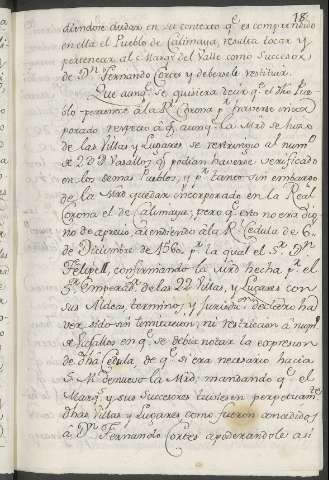 18.
dicirse dudar en su contexto q.e es comprendido
en ella el Pueblo de Calimaya, resulta tocar y
pertenecer al Marq.s del Valle como Succesor,
de D.n Fernando Cortes y deversele restituir.
Que aunq.e se quisiera decir q.e el dho Pue
blo perteneció à la R.l Corona p.r haverse incor
porado respecto à q.e aunq.e la Mrd se hizo
de las Villas y Lugares se restringio al num.o
de 23 D Vasallos q.e podian haverse verificado
en los demas Pueblos, y p.r tanto sin embargo
de la Mrd quedar incorporado en la Real
Corona el de Calimaya; pero q.e esto no era dig
no de aprecio, atendiendo à la R.l Cedula de 6
de Diciembre de 1560. p.r la qual el S.r D.n
Felipe II, confirmando la Mrd hecha p.r el
S.r Emperad.r de las 22 Villas, y Lugares con
sus Aldeas, terminos, y Jurisd.on declaró ha
ver sido sin limitacion, ni restriccion à num.o
de Vasallos en q.e se debia notar la expresion
de dha Cedula, de q.e si era necesario hacia
S. M. de nuevo la Mrd, mandando q.e el
Marq.s y sus Succesores tuviesen perpetuam.te
dhas Villas y Lugares como fueron concedidos
a D.n Fernando Cortes apoderandole asi